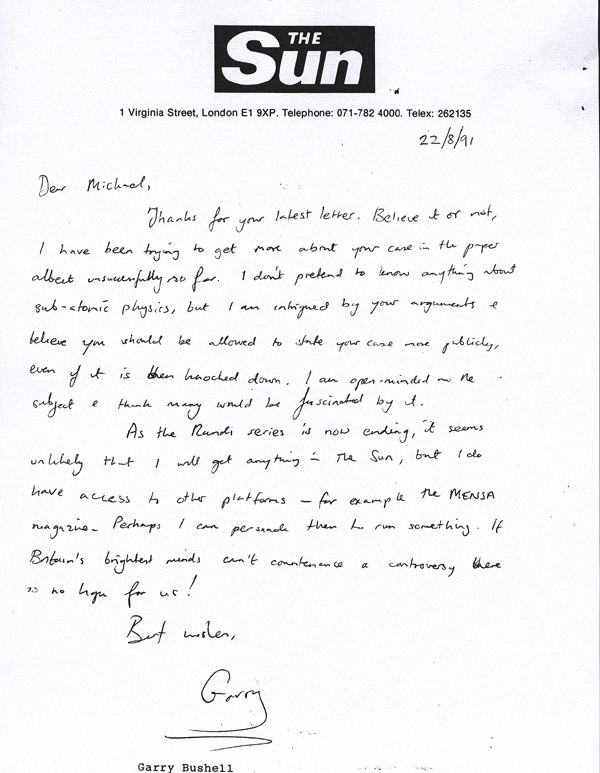 THE
Sun
1 Virginia Street, London E1 9XP. Telephone: 071-782 4000. Telex: 262135
22/8/91
Dear Michael,
Thanks for your latest letter. Believe it or not,
I have been trying to get more about your case in the paper
albeit unsuccessfully so far. I don't pretend to know anything about
sub-atomic physics, but I am intrigued by your arguments &
believe you should be allowed to state your case more publicly,
even if it is then knocked down. I am open-minded on the
subject & think many would be fascinated by it.
As the Randi series is now ending, it seems
unlikely that I will get anything in The Sun, but I do
have access to other platforms - for example the MENSA
magazine - Perhaps I can persuade them to run something. If
Britain's brightest minds can't countenance a controversy there
is no hope for us!
Best wishes,
Garry
Garry Bushell